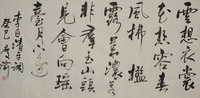 雲想衣裳
花想容春
風拂檻
露華濃若
非群玉山頭
見會向瑤
臺月下逢
李白清平調
癸巳